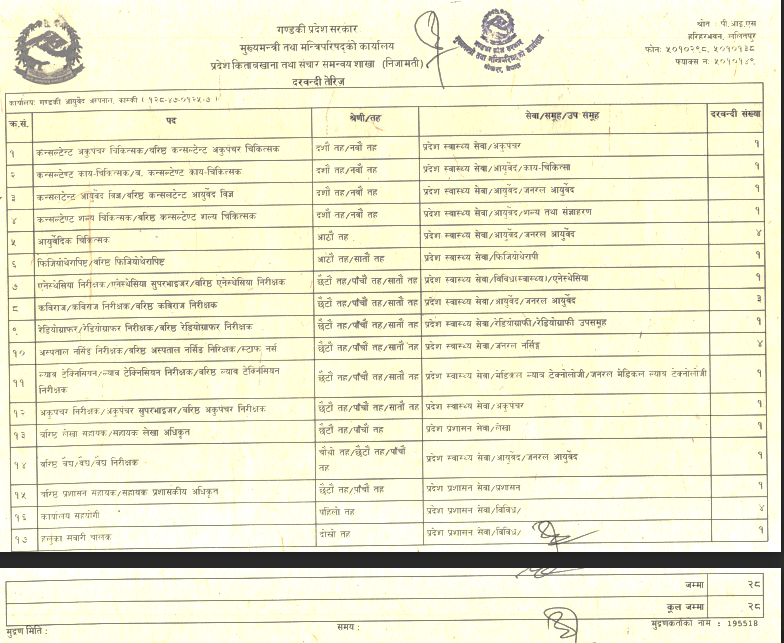 गण्डकी प्रदेश सरकार
मुख्यमन्त्री तथा मन्त्रिपरिषद्को कार्यालय
प्रदेश कितावखाना तथा संचार समन्वय शाखा (निजामती)
दरवन्दी तेरिज
फोन : पी.आइ.एस
हरिहरभवन, ललितपुर
फोन: ५०१०२९८, ५०१०१३८
फ्याक्स नं: ५०१०१४९
कार्यालय: गण्डकी आयुर्वेद अस्पताल, कास्की ( १२८-४७-०१२५-७ )
क्र.सं. पद श्रेणी/तह सेवा/समूह/उप समूह दरवन्दी संख्या
१ कन्सल्टेन्ट अकुपंचर चिकित्सक/वरिष्ठ कन्सल्टेन्ट अकुपंचर चिकित्सक दशौं तह/नवौं तह प्रदेश स्वास्थ्य सेवा/अकुपंचर १
२ कन्सल्टेण्ट काय-चिकित्सक/व. कन्सल्टेण्ट काय-चिकित्सक दशौं तह/नवौं तह प्रदेश स्वास्थ्य सेवा/आयुर्वेद/काय-चिकित्सा १
३ कन्सलटेन्ट आयुर्वेद विज्ञ/वरिष्ठ कन्सलटेन्ट आयुर्वेद विज्ञ दशौं तह/नवौं तह प्रदेश स्वास्थ्य सेवा/आयुर्वेद/जनरल आयुर्वेद १
४ कन्सल्टेण्ट शल्य चिकित्सक/वरिष्ठ कन्सल्टेण्ट शल्य चिकित्सक दशौं तह/नवौं तह प्रदेश स्वास्थ्य सेवा/आयुर्वेद/शल्य तथा संज्ञाहरण १
५ आयुर्वेदिक चिकित्सक आठौं तह प्रदेश स्वास्थ्य सेवा/आयुर्वेद/जनरल आयुर्वेद ४
६ फिजियोथेरापिष्ट/वरिष्ठ फिजियोथेरापिष्ट आठौं तह/सातौं तह प्रदेश स्वास्थ्य सेवा/फिजियोथेरापी १
७ एनेस्थेसिया निरीक्षक/एनेस्थेसिया सुपरभाइजर/वरिष्ठ एनेस्थेसिया निरीक्षक छैटौं तह/पाँचौं तह/सातौं तह प्रदेश स्वास्थ्य सेवा/विविध(स्वास्थ्य)/एनेस्थेसिया १
८ कविराज/कविराज निरीक्षक/वरिष्ठ कविराज निरीक्षक छैटौं तह/पाँचौं तह/सातौं तह प्रदेश स्वास्थ्य सेवा/आयुर्वेद/जनरल आयुर्वेद ३
९ रेडियोग्राफर/रेडियोग्राफर निरीक्षक/वरिष्ठ रेडियोग्राफर निरीक्षक छैटौं तह/पाँचौं तह/सातौं तह प्रदेश स्वास्थ्य सेवा/रेडियोग्राफी/रेडियोग्राफी उपसमूह १
१० अस्पताल नर्सिङ निरीक्षक/वरिष्ठ अस्पताल नर्सिङ निरिक्षक/स्टाफ नर्स छैटौं तह/पाँचौं तह/सातौं तह प्रदेश स्वास्थ्य सेवा/जनरल नर्सिङ्ग ४
११ ल्याव टेक्निसियन/ल्याव टेक्निसियन निरीक्षक/वरिष्ठ ल्याव टेक्निसियन छैटौं तह/पाँचौं तह/सातौं तह प्रदेश स्वास्थ्य सेवा/मेडिकल ल्याव टेक्नोलोजी/जनरल मेडिकल ल्याव टेक्नोलोजी १
निरीक्षक
१२ अकुपंचर निरीक्षक/अकुपंचर सुपरभाइजर/वरिष्ठ अकुपंचर निरीक्षक छैटौं तह/पाँचौं तह/सातौं तह प्रदेश स्वास्थ्य सेवा/अकुपंचर १
१३ वरिष्ठ लेखा सहायक/सहायक लेखा अधिकृत छैटौं तह/पाँचौं तह प्रदेश प्रशासन सेवा/लेखा १
१४ वरिष्ठ वैद्य/वैद्य/वैद्य निरीक्षक चौथो तह/छैटौं तह/पाँचौं प्रदेश स्वास्थ्य सेवा/आयुर्वेद/जनरल आयुर्वेद १
तह
१५ वरिष्ठ प्रशासन सहायक/सहायक प्रशासकीय अधिकृत छैटौं तह/पाँचौं तह प्रदेश प्रशासन सेवा/प्रशासन १
१६ कार्यालय सहयोगी पहिलो तह प्रदेश प्रशासन सेवा/विविध/ ४
१७ हलुका सवारी चालक दोस्रो तह प्रदेश प्रशासन सेवा/विविध/ १
जम्मा २८
कूल जम्मा २८
मुद्रण मिति : समय : मुद्रणकर्ताको नाम : 195518